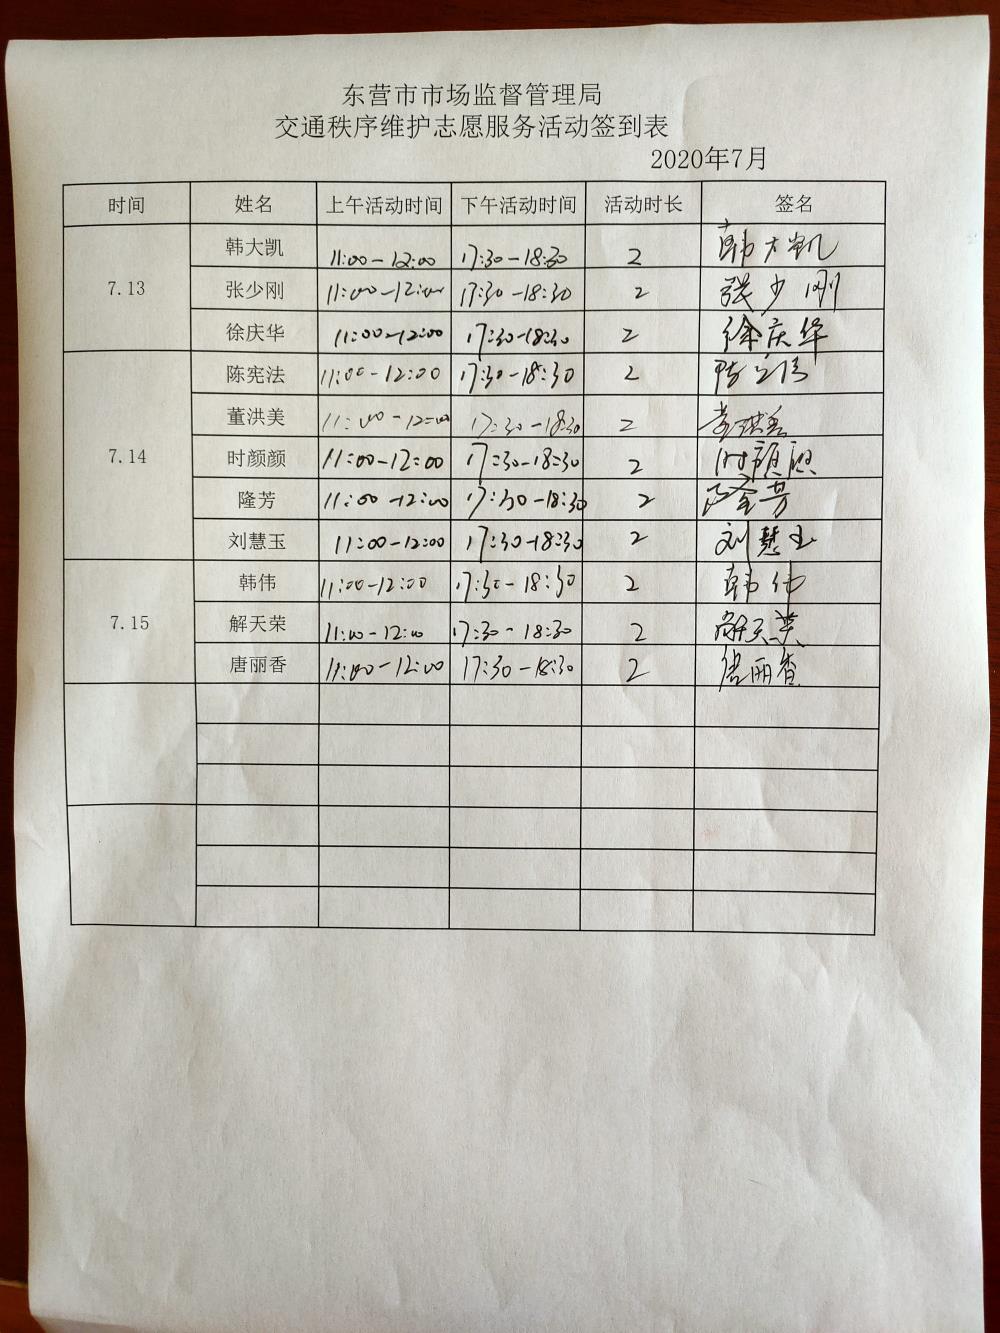 东营市市场监督管理局
交通秩序维护志愿服务活动签到表
2020年7月
时间 姓名 上午活动时间 下午活动时间 活动时长 签名
7.13 韩大凯 11:00-12:00 17:30-18:30 2 韩大凯
张少刚 11:00-12:00 17:30-18:30 2 张少刚
徐庆华 11:00-12:00 17:30-18:30 2 徐庆华
7.14 陈宪法 11:00-12:00 17:30-18:30 2 陈宪法
董洪美 11:00-12:00 17:30-18:30 2 董洪美
时颜颜 11:00-12:00 17:30-18:30 2 时颜颜
隆芳 11:00-12:00 17:30-18:30 2 隆芳
刘慧玉 11:00-12:00 17:30-18:30 2 刘慧玉
7.15 韩伟 11:00-12:00 17:30-18:30 2 韩伟
解天荣 11:00-12:00 17:30-18:30 2 解天荣
唐丽香 11:00-12:00 17:30-18:30 2 唐丽香